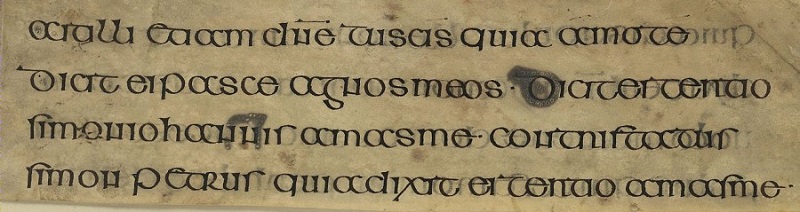 ait illi etiam dn̄e tu scis quia amo te
Dicit ei pasce agnos meos · Dicit ei tertio
simon iohannis amas me · contristatus
simon petrus quia dixit ei tertio amas me ·